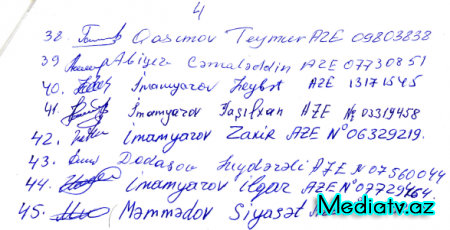 4
38. Qasımov Teymur AZE 09803838
39 Abiyev Cəmaləddin AZE 07730851
40. İmamyarov Heybət AZE 13171545
41. İmamyarov Paşaxan AZE № 03319458
42. İmamyarov Zakir AZE N° 06329219.
43. Dadaşov Heydərəli AZE N 07560044
44. İmamyarov İlqar AZE N° 07729464
45. Məmmədov Siyasət
Mediatv.az